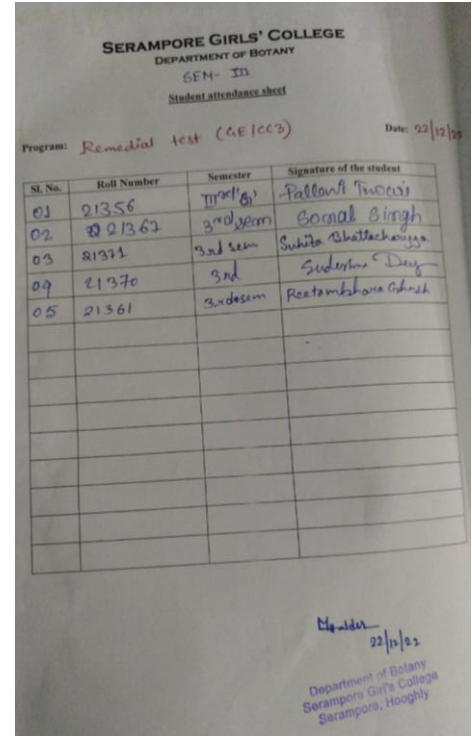 SERAMPORE GIRLS' COLLEGE
DEPARTMENT OF BOTANY
SEM- III
Student attendance sheet
Program: Remedial test (GE/CC3) Date: 22/12/22
SL. No. Roll Number Semester Signature of the student
01 21356 Pallavi Tiwari
02 21367 3rd sem Gomal Singh
03 21371 3rd sem Suhita Bhattacharyya
04 21370 3rd Sudeshna Dey
05 21361 3rd sem Reetambhara Ghosh
22/12/22
Department of Botany
Serampore Girl's College
Serampore, Hooghly